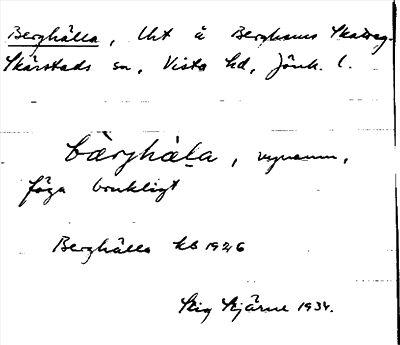 Berghälla, Uht å Berghems Skattag.
Skärstads sn, Vista hd, Jönk. l.
bàrghàḷa, nynamn,
föga brukligt
Berghälla kb 1946
Stig Skjärne 1934.